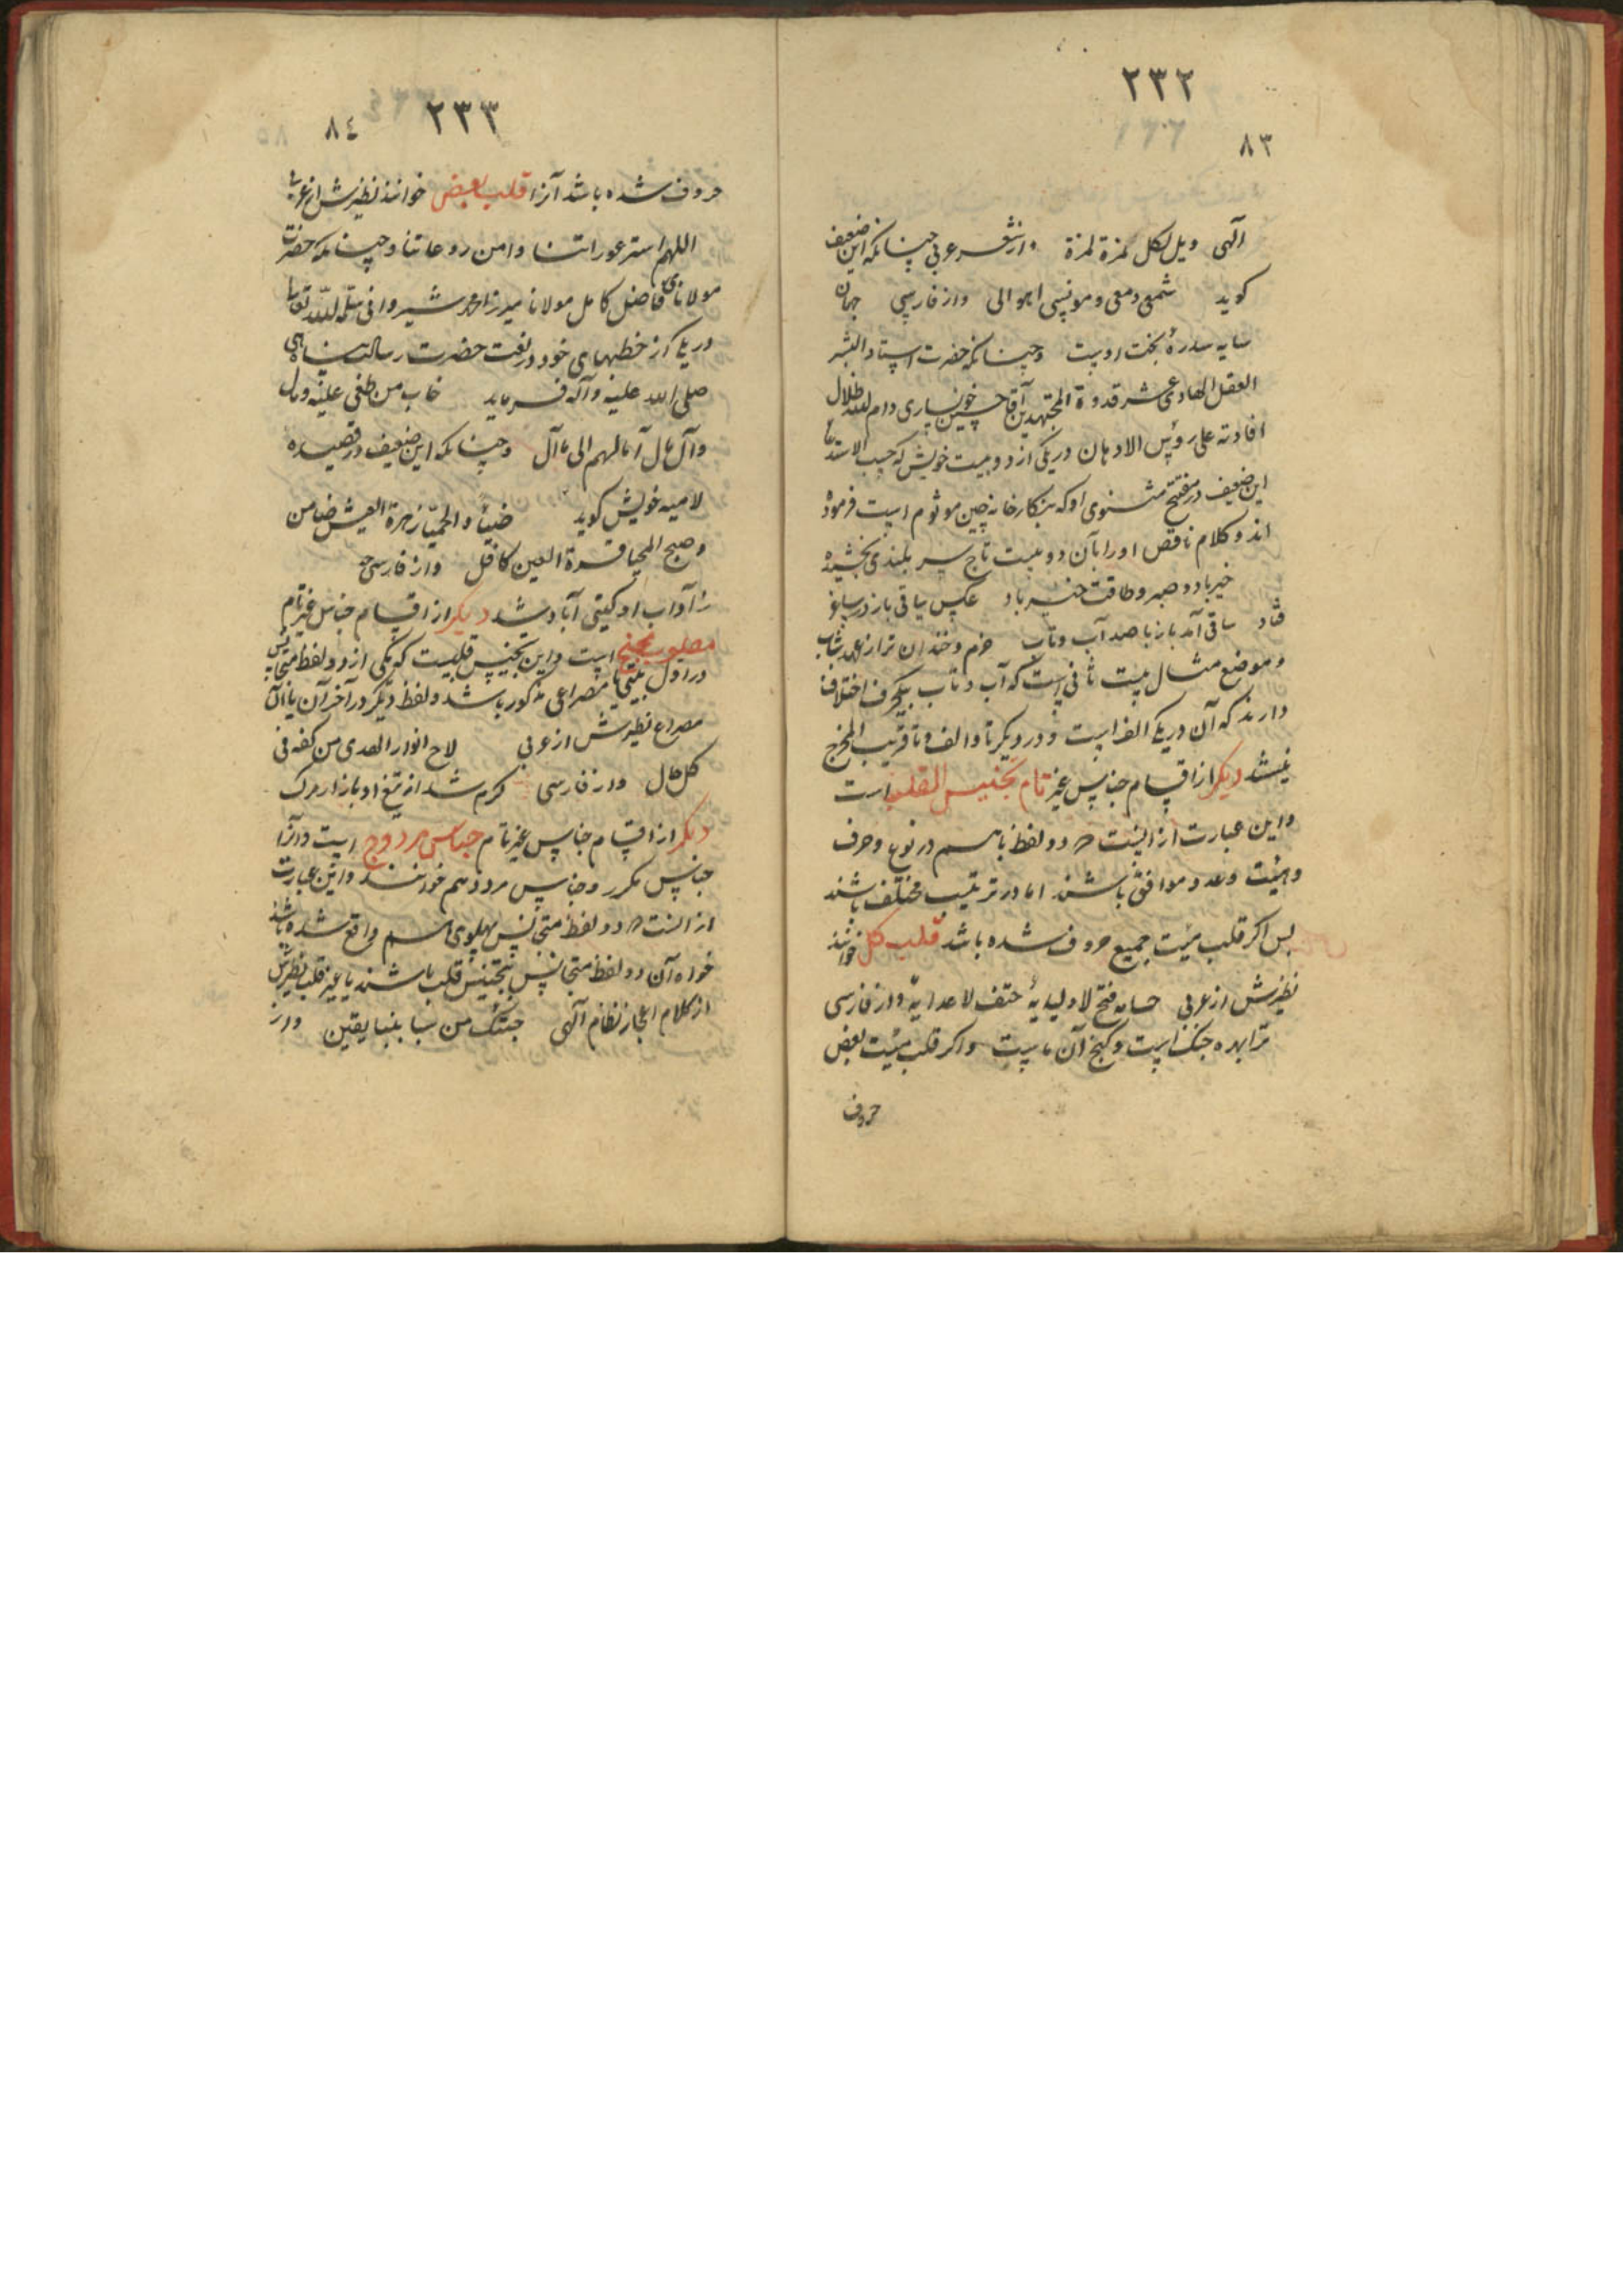 ٢٣٢
٨٣
آلهی ویل لکل همزة لمزة و از شعر عربی چنانکه این ضعیف
کوید شمعی دمعی و مونسی اهوالی و از فارسی جهان
سایه سدرهٔ بخت اوست و چنانکه حضرت استاد البشر
العقل الهادی عشر قدوة المجتهدین آقا حسین خونساری دام الله ظلال
افادته علی رؤس الاذهان در یکی از دو بیت خویش که حسب الاستدعا
این ضعیف در مفتتح مثنوی او که بنکارخانه چین موسوم است فرموده
اند و کلام ناقص او را بآن دو بیت تاج سر بلندی بخشیده
خیرباد و صبر و طاقت خیر باد عکس ساقی باز در ساغر
فتاد ساقی آمد باز با صد آب و تاب خرم و خندان تر از عهد شباب
و موضع مثال بیت ثانی است که آب و تاب بیکحرف اختلاف
دارند که آن در یکی الف است و در دیکر تا و الف و تا قریب المخرج
نیستند دیکر از اقسام جناس غیر تام تجنیس القلب است
و این عبارت از اینست که دو لفظ با هم در نوع و حرف
و هیئت و عدد موافق باشند اما در ترتیب مختلف باشند
پس اکر قلب هیئت جمیع حروف شده باشد قلب کل خوانند
نظیرش از عربی حسامه فتح لاولیایه حتف لاعدایه و از فارسی
ترا بهره جنک است و کنج آن ماست و اکر قلب هیئت بعض
حروف
٢٣٣
٨٤
حروف شده باشد آنرا قلب بعض خوانند نظیرش از عربی
اللهم استر عوراتنا و امن روعاتنا و چنانکه حضرت
مولانای فاضل کامل مولانا میرزا محمد شیروانی سلمه الله تعالی
در یکی از خطبهای خود در نعت حضرت رسالت پناهی
صلی الله علیه و آله فرماید خاب من طغی علیه و مال
و آل مال آمالهم الی مآل و چنانکه این ضعیف در قصیده
لامیه خویش کوید ضیاء الحمیا زهرة العیش ضامن
و صبح المحیا قرة العین کافل و از فارسی
ز آداب او کیتی آباد شد دیکر از اقسام جناس غیر تام
مقلوب مجنح است و این تجنیس قلبیست که یکی از دو لفظ متجانس
در اول بیتی یا مصراعی مذکور باشد و لفظ دیکر در آخر آن یا آن
مصراع نظیرش از عربی لاح انوار الهدی من کفه فی
کل حال و از فارسی کرم شد از تیغ او بازار مرک
دیکر از اقسام جناس غیر تام جناس مزدوج است و آنرا
جناس مکرر و جناس مردد هم خوانند و این عبارت
از اینست که دو لفظ متجانس پهلوی هم واقع شده باشد
خواه آن دو لفظ متجانس بتجنیس قلب باشند یا غیر قلب نظیرش
از کلام اعجاز نظام آلهی جئتک من سبا بنبا یقین و از